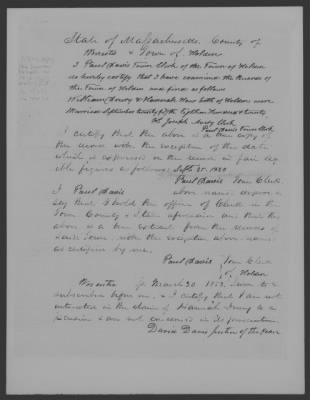 State of Massachusetts. County of
Worcester & Town of Holden
I Paul Davis Town Clerk of the Town of Holden
do hereby certify that I have examined the Records of
the Town of Holden and find as follows
William Drury & Hannah Howe both of Holden were
Married September twenty fifth Eighteen hundred & twenty
Att. Joseph Clerk
Paul Davis Town Clerk
I certify that the above is a true copy of
the record with the exception of the date
which is expressed in the record in fair legi
ble figures as follows; Sept. 25. 1820
Paul Davis Town Clerk
I Paul Davis above named depose &
say that I hold the office of Clerk in the
Town County & State aforesaid and that the
above is a true extract from the records of
said Town, with the exception above named
as certified by me.
Paul Davis Town Clerk
of Holden
Worcester March 30 1853, Sworn to &
subscribed before me, & I certify that I am not
interested in the claim of Hannah Drury to a
Pension & am not concerned in its prosecution
Davis Justice of the Peace